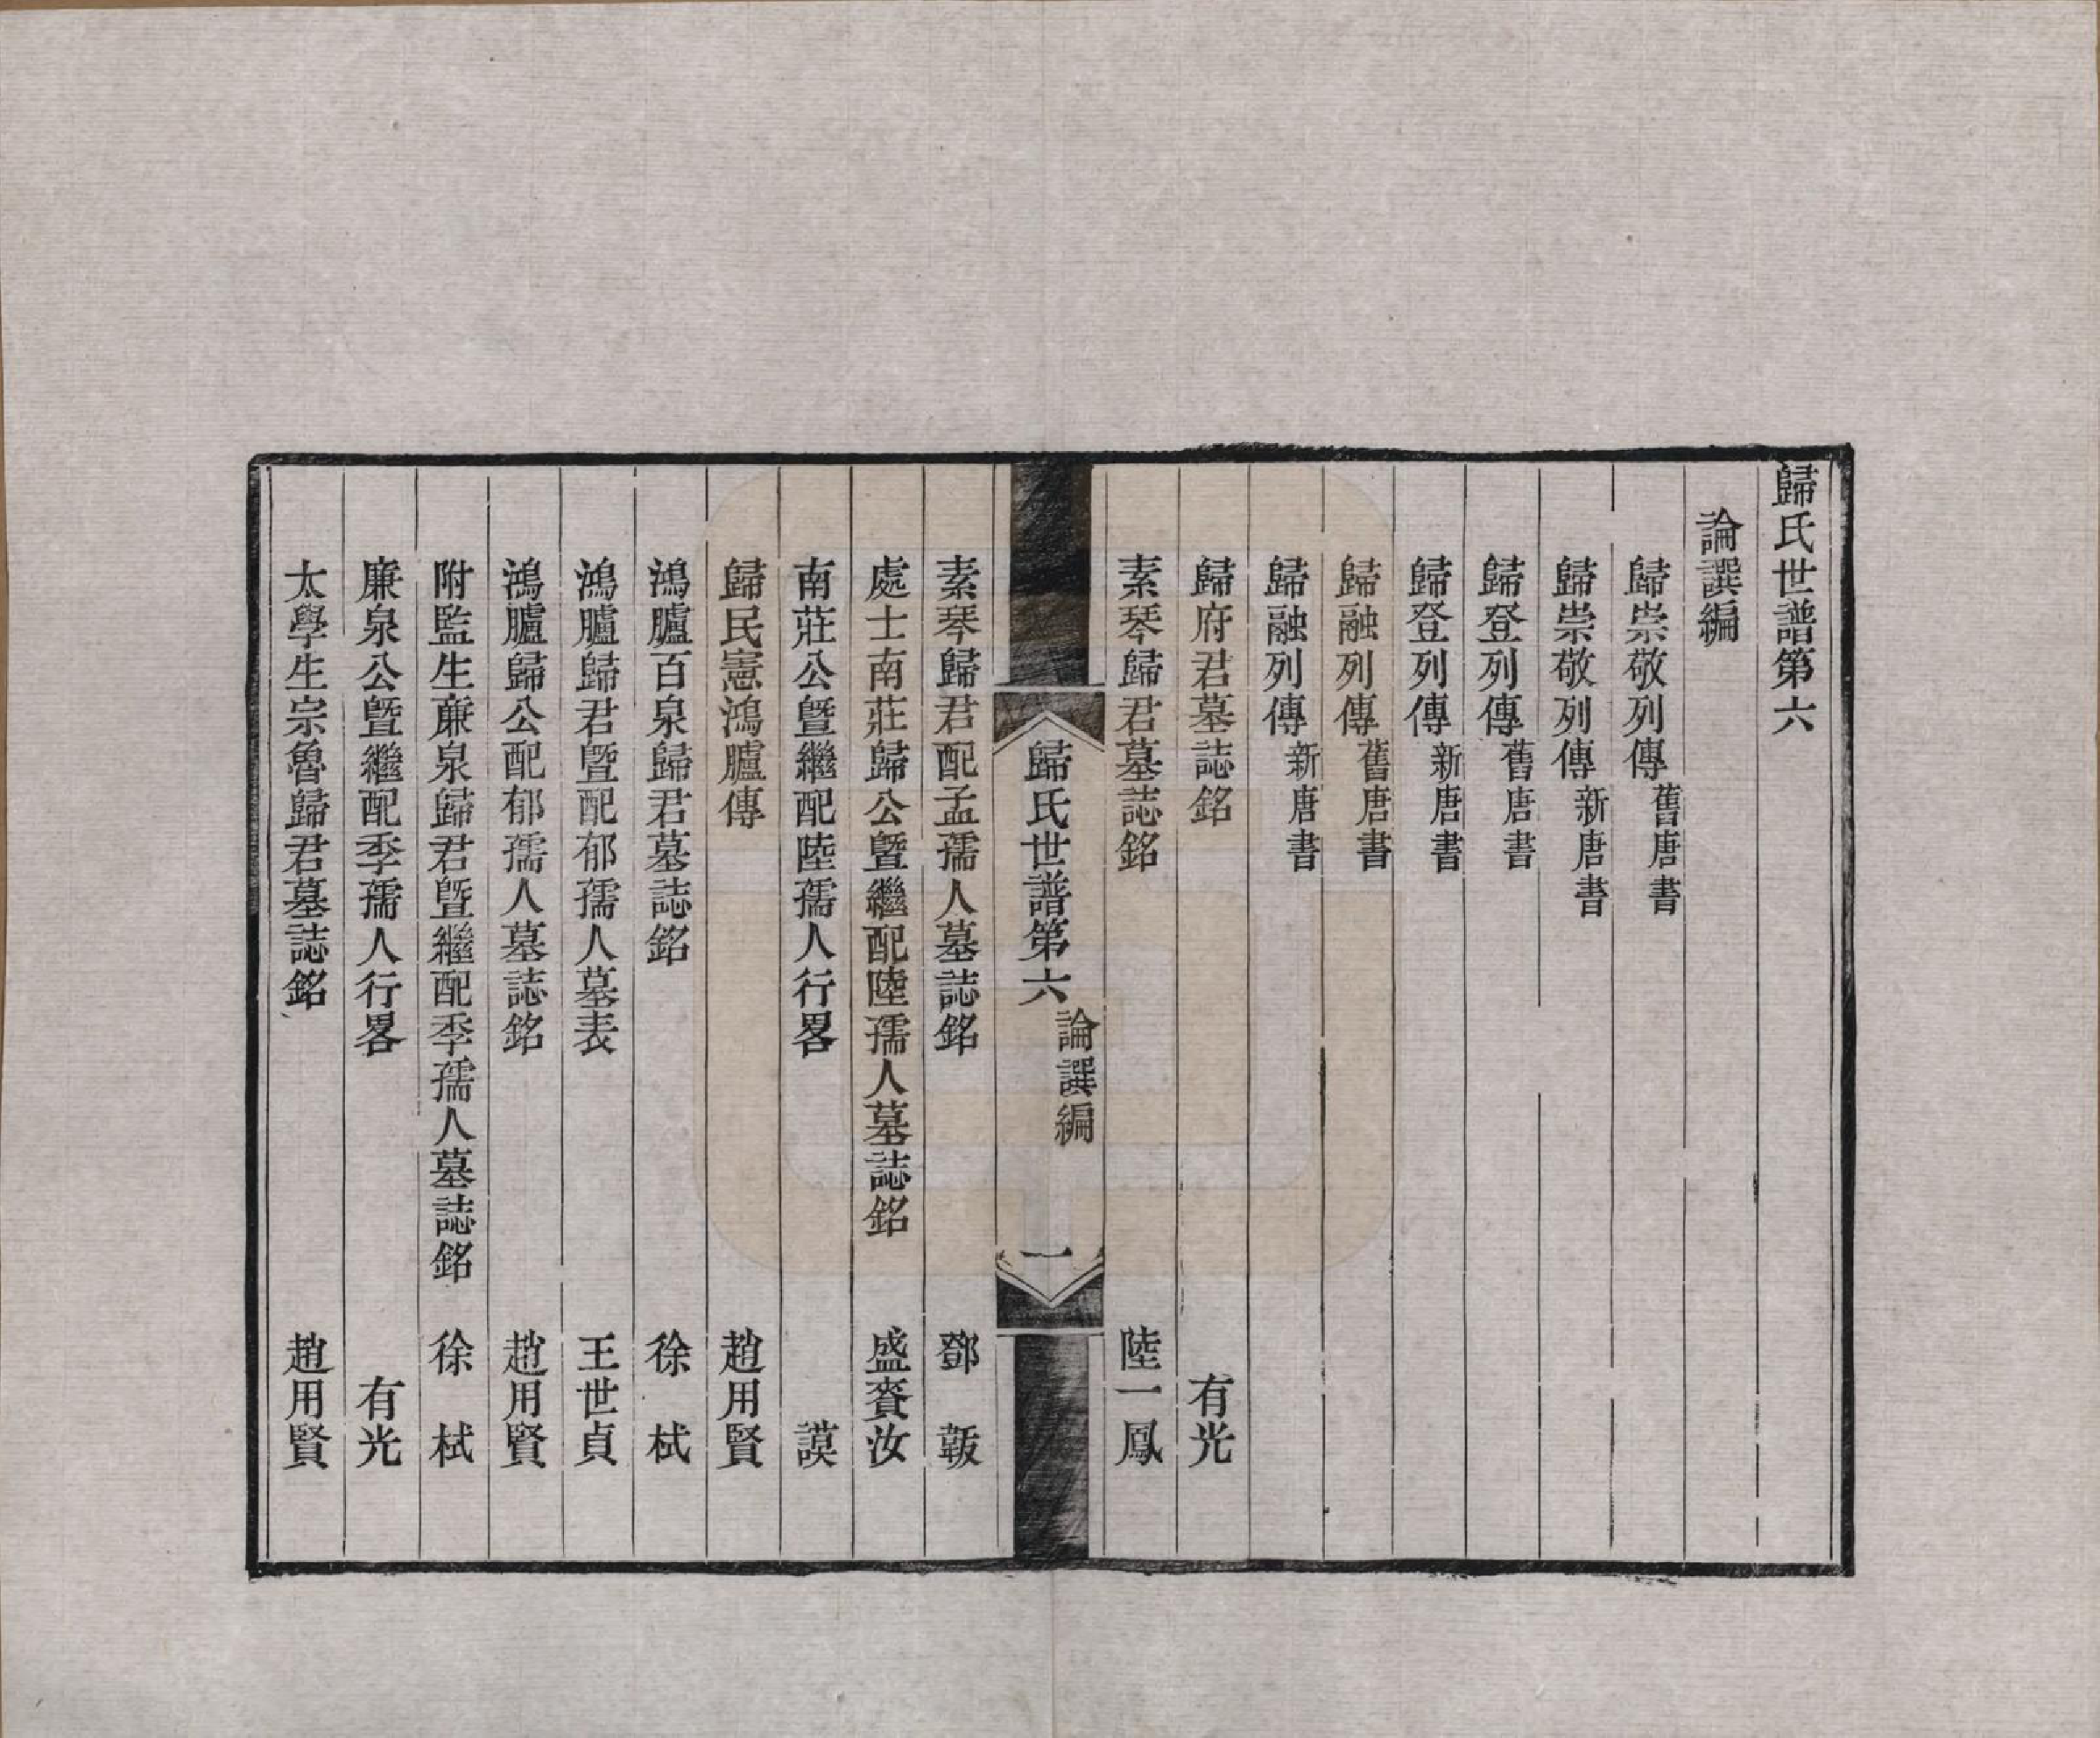 歸氏世譜第六
論譔編
歸崇敬列傳舊唐書
歸崇敬列傳新唐書
歸登列傳舊唐書
歸登列傳新唐書
歸融列傳舊唐書
歸融列傳新唐書
歸府君墓誌銘 有光
素琴歸君墓誌銘 陸一鳳
歸氏世譜第六 論譔編 一
素琴歸君配孟孺人墓誌銘 鄧 韍
處士南莊歸公暨繼配陸孺人墓誌銘 盛賚汝
南莊公暨繼配陸孺人行畧 謨
歸民憲鴻臚傳 趙用賢
鴻臚百泉歸君墓誌銘 徐 栻
鴻臚歸君暨配郁孺人墓表 王世貞
鴻臚歸公配郁孺人墓誌銘 趙用賢
附監生亷泉歸君暨繼配季孺人墓誌銘 徐 栻
亷泉公暨繼配季孺人行畧 有光
太學生宗魯歸君墓誌銘 趙用賢